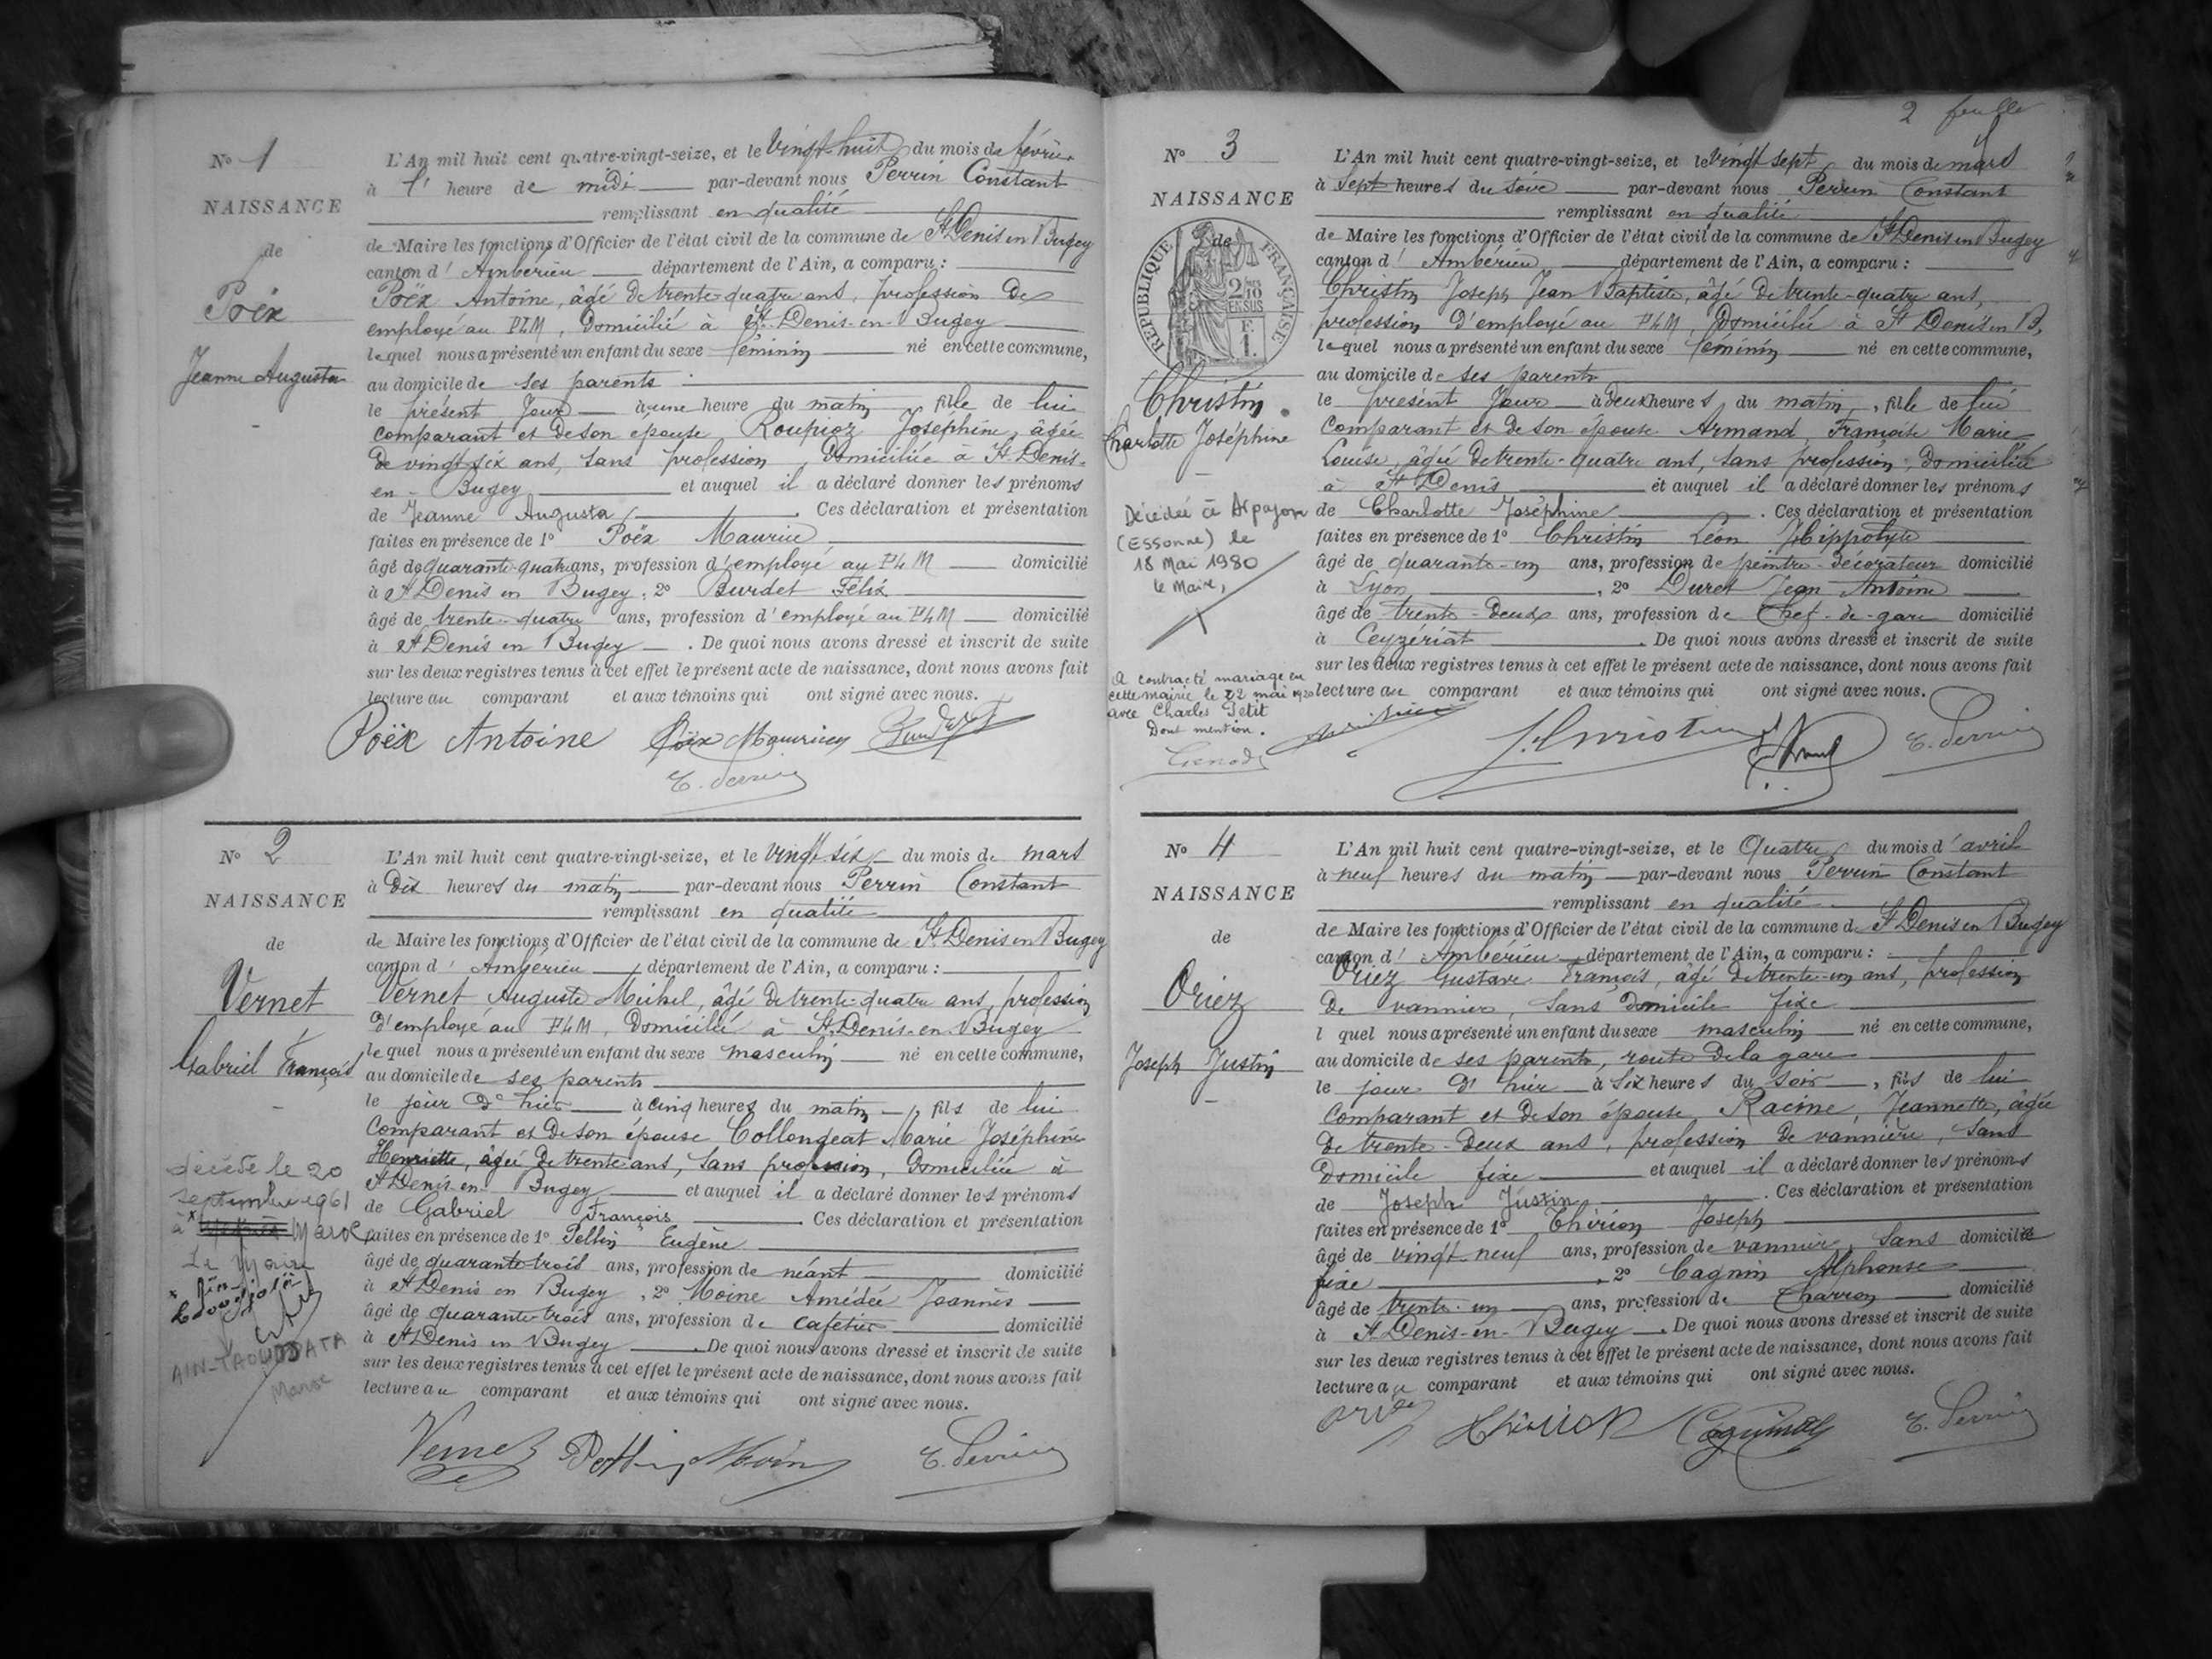 No 1
NAISSANCE
de
Poëx
Jeanne Augusta
L'An mil huit cent quatre-vingt-seize, et le vingt-huit du mois de février
à l' heure de midi par-devant nous Perrin Constant
remplissant en qualité
de Maire les fonctions d'Officier de l'état civil de la commune de St Denis en Bugey
canton d' Ambérieu département de l'Ain, a comparu :
Poëx Antoine, âgé de trente-quatre ans, profession de
employé au PLM, domicilié à St Denis-en-Bugey
lequel nous a présenté un enfant du sexe féminin né en cette commune,
au domicile de ses parents
le présent jour à une heure du matin fille de lui
comparant et de son épouse Roupioz Joséphine, âgée
de vingt-six ans, sans profession, domiciliée à St Denis-
en-Bugey et auquel il a déclaré donner les prénoms
de Jeanne Augusta. Ces déclaration et présentation
faites en présence de 1° Poëx Maurice
âgé de quarante-quatre ans, profession d'employé au PLM domicilié
à St Denis en Bugey, 2° Burdet Félix
âgé de trente-quatre ans, profession d'employé au PLM domicilié
à St Denis en Bugey. De quoi nous avons dressé et inscrit de suite
sur les deux registres tenus à cet effet le présent acte de naissance, dont nous avons fait
lecture au comparant et aux témoins qui ont signé avec nous.
Poëx Antoine Poëx Maurice Burdet
C. Perrin
No 2
NAISSANCE
de
Vernet
Gabriel François
décédé le 20
septembre 1961
à Maroc
Le Maire
AIN-TAOUJDATA
Maroc
L'An mil huit cent quatre-vingt-seize, et le vingt-six du mois de mars
à dix heures du matin par-devant nous Perrin Constant
remplissant en qualité
de Maire les fonctions d'Officier de l'état civil de la commune de St Denis en Bugey
canton d' Ambérieu département de l'Ain, a comparu :
Vernet Auguste Michel, âgé de trente-quatre ans, profession
d'employé au PLM, domicilié à St Denis-en-Bugey
lequel nous a présenté un enfant du sexe masculin né en cette commune,
au domicile de ses parents
le jour d'hier à cinq heures du matin, fils de lui
comparant et de son épouse Collongeat Marie Joséphine
Henriette, âgée de trente ans, sans profession, domiciliée à
St Denis-en-Bugey et auquel il a déclaré donner les prénoms
de Gabriel François. Ces déclaration et présentation
faites en présence de 1° Pellin Eugène
âgé de quarante-trois ans, profession de néant domicilié
à St Denis en Bugey, 2° Moine Amédée Joannès
âgé de quarante-trois ans, profession de cafetier domicilié
à St Denis en Bugey. De quoi nous avons dressé et inscrit de suite
sur les deux registres tenus à cet effet le présent acte de naissance, dont nous avons fait
lecture au comparant et aux témoins qui ont signé avec nous.
Vernet Pellin Moine C. Perrin
2 feuille
No 3
NAISSANCE
de
REPUBLIQUE FRANÇAISE
2/10 EN SUS
F. 1.
Christin
Charlotte Joséphine
Décédée à Arpajon
(Essonne) le
18 Mai 1980
Le Maire,
A contracté mariage en
cette mairie le 22 mai 1920
avec Charles Petit
Dont mention.
L'An mil huit cent quatre-vingt-seize, et le vingt sept du mois de mars
à sept heures du soir par-devant nous Perrin Constant
remplissant en qualité
de Maire les fonctions d'Officier de l'état civil de la commune de St Denis en Bugey
canton d' Ambérieu département de l'Ain, a comparu :
Christin Joseph Jean Baptiste, âgé de trente-quatre ans,
profession d'employé au PLM, domicilié à St Denis en B.
lequel nous a présenté un enfant du sexe féminin né en cette commune,
au domicile de ses parents
le présent jour à deux heures du matin, fille de lui
comparant et de son épouse Armand Françoise Marie
Louise, âgée de trente-quatre ans, sans profession, domiciliée
à St Denis et auquel il a déclaré donner les prénoms
de Charlotte Joséphine. Ces déclaration et présentation
faites en présence de 1° Christin Léon Hippolyte
âgé de quarante-un ans, profession de peintre-décorateur domicilié
à Lyon, 2° Duret Jean Antoine
âgé de trente-deux ans, profession de Chef-de-gare domicilié
à Ceyzériat. De quoi nous avons dressé et inscrit de suite
sur les deux registres tenus à cet effet le présent acte de naissance, dont nous avons fait
lecture au comparant et aux témoins qui ont signé avec nous.
J. Christin C. Perrin
No 4
NAISSANCE
de
Oriez
Joseph Justin
L'An mil huit cent quatre-vingt-seize, et le Quatre du mois d'avril
à neuf heures du matin par-devant nous Perrin Constant
remplissant en qualité
de Maire les fonctions d'Officier de l'état civil de la commune d. St Denis en Bugey
canton d' Ambérieu département de l'Ain, a comparu :
Oriez Gustave François, âgé de trente-un ans, profession
de vannier, sans domicile fixe
l quel nous a présenté un enfant du sexe masculin né en cette commune,
au domicile de ses parents, route de la gare
le jour d'hier à six heures du soir, fils de lui
comparant et de son épouse, Racine, Jeannette, âgée
de trente-deux ans, profession de vannière, sans
domicile fixe et auquel il a déclaré donner les prénoms
de Joseph Justin. Ces déclaration et présentation
faites en présence de 1° Thirion Joseph
âgé de vingt-neuf ans, profession de vannier, sans domicile
fixe, 2° Cagnin Alphonse
âgé de trente-un ans, profession de Charron domicilié
à St Denis-en-Bugey. De quoi nous avons dressé et inscrit de suite
sur les deux registres tenus à cet effet le présent acte de naissance, dont nous avons fait
lecture au comparant et aux témoins qui ont signé avec nous.
Thirion C. Perrin